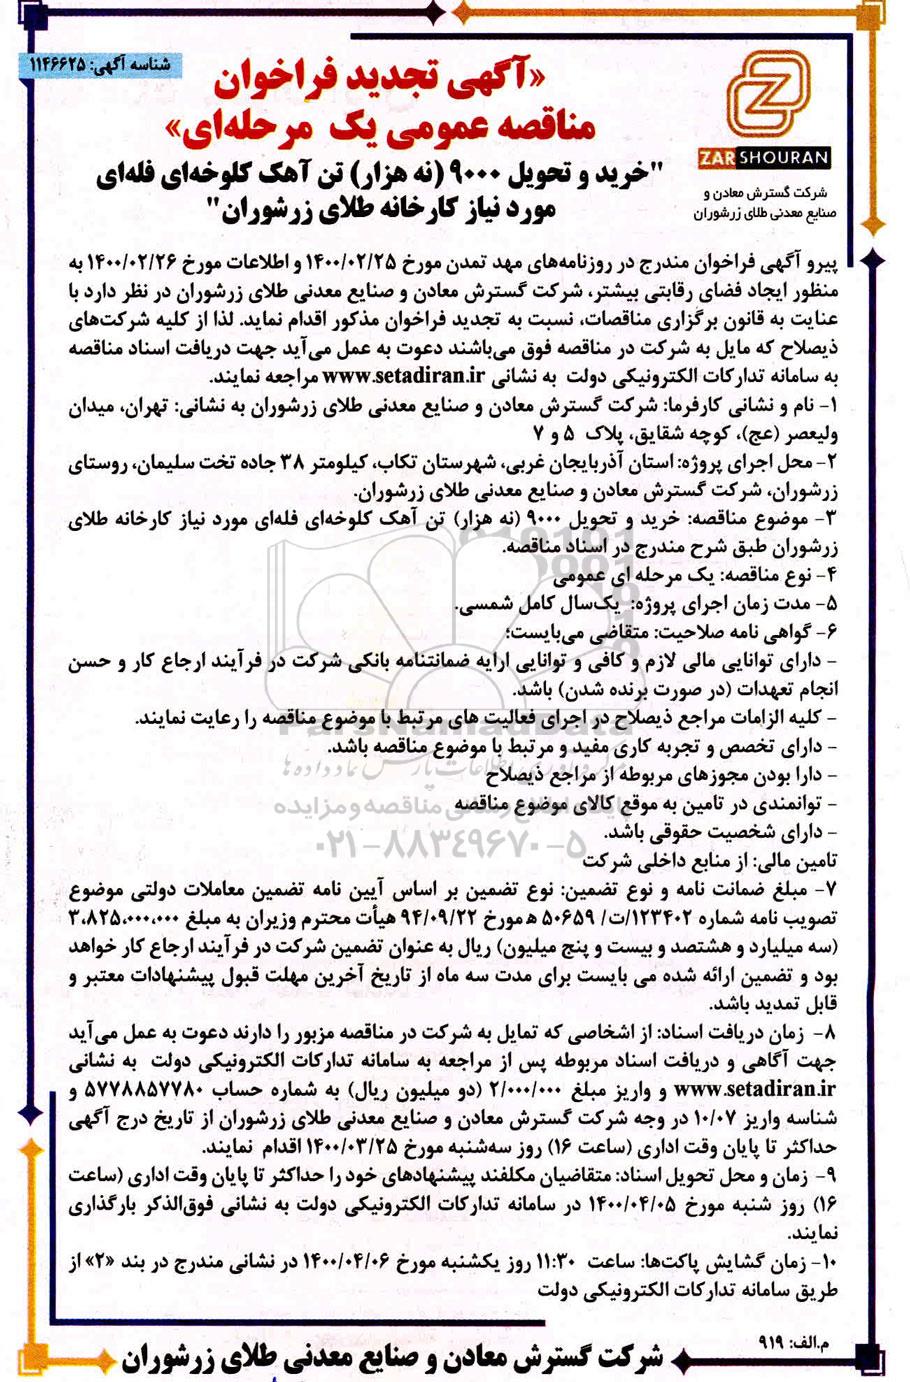 شناسه آگهی: ۱۱۴۶۶۲۵
«آگهی تجدید فراخوان
مناقصه عمومی یک مرحله‌ای»
"خرید و تحویل ۹۰۰۰ (نه هزار) تن آهک کلوخه‌ای فله‌ای
مورد نیاز کارخانه طلای زرشوران"
ZARSHOURAN
شرکت گسترش معادن و
صنایع معدنی طلای زرشوران
پیرو آگهی فراخوان مندرج در روزنامه‌های مهد تمدن مورخ ۱۴۰۰/۰۲/۲۵ و اطلاعات مورخ ۱۴۰۰/۰۲/۲۶ به
منظور ایجاد فضای رقابتی بیشتر، شرکت گسترش معادن و صنایع معدنی طلای زرشوران در نظر دارد با
عنایت به قانون برگزاری مناقصات، نسبت به تجدید فراخوان مذکور اقدام نماید. لذا از کلیه شرکت‌های
ذیصلاح که مایل به شرکت در مناقصه فوق می‌باشند دعوت به عمل می‌آید جهت دریافت اسناد مناقصه
به سامانه تدارکات الکترونیکی دولت به نشانی www.setadiran.ir مراجعه نمایند.
۱- نام و نشانی کارفرما: شرکت گسترش معادن و صنایع معدنی طلای زرشوران به نشانی: تهران، میدان
ولیعصر (عج)، کوچه شقایق، پلاک ۵ و ۷
۲- محل اجرای پروژه: استان آذربایجان غربی، شهرستان تکاب، کیلومتر ۳۸ جاده تخت سلیمان، روستای
زرشوران، شرکت گسترش معادن و صنایع معدنی طلای زرشوران.
۳- موضوع مناقصه: خرید و تحویل ۹۰۰۰ (نه هزار) تن آهک کلوخه‌ای فله‌ای مورد نیاز کارخانه طلای
زرشوران طبق شرح مندرج در اسناد مناقصه.
۴- نوع مناقصه: یک مرحله ای عمومی
۵- مدت زمان اجرای پروژه: یک‌سال کامل شمسی.
۶- گواهی نامه صلاحیت: متقاضی می‌بایست؛
- دارای توانایی مالی لازم و کافی و توانایی ارایه ضمانتنامه بانکی شرکت در فرآیند ارجاع کار و حسن
انجام تعهدات (در صورت برنده شدن) باشد.
- کلیه الزامات مراجع ذیصلاح در اجرای فعالیت های مرتبط با موضوع مناقصه را رعایت نمایند.
- دارای تخصص و تجربه کاری مفید و مرتبط با موضوع مناقصه باشد.
- دارا بودن مجوزهای مربوطه از مراجع ذیصلاح
- توانمندی در تامین به موقع کالای موضوع مناقصه
- دارای شخصیت حقوقی باشد.
تامین مالی: از منابع داخلی شرکت
۷- مبلغ ضمانت نامه و نوع تضمین: نوع تضمین بر اساس آیین نامه تضمین معاملات دولتی موضوع
تصویب نامه شماره ۱۲۳۴۰۲/ت/ ۵۰۶۵۹ ه مورخ ۹۴/۰۹/۲۲ هیأت محترم وزیران به مبلغ ۳،۸۲۵،۰۰۰،۰۰۰
(سه میلیارد و هشتصد و بیست و پنج میلیون) ریال به عنوان تضمین شرکت در فرآیند ارجاع کار خواهد
بود و تضمین ارائه شده می بایست برای مدت سه ماه از تاریخ آخرین مهلت قبول پیشنهادات معتبر و
قابل تمدید باشد.
۸- زمان دریافت اسناد: از اشخاصی که تمایل به شرکت در مناقصه مزبور را دارند دعوت به عمل می‌آید
جهت آگاهی و دریافت اسناد مربوطه پس از مراجعه به سامانه تدارکات الکترونیکی دولت به نشانی
www.setadiran.ir و واریز مبلغ ۲/۰۰۰/۰۰۰ (دو میلیون ریال) به شماره حساب ۵۷۷۸۸۵۷۷۸۰ و
شناسه واریز ۱۰/۰۷ در وجه شرکت گسترش معادن و صنایع معدنی طلای زرشوران از تاریخ درج آگهی
حداکثر تا پایان وقت اداری (ساعت ۱۶) روز سه‌شنبه مورخ ۱۴۰۰/۰۳/۲۵ اقدام نمایند.
۹- زمان و محل تحویل اسناد: متقاضیان مکلفند پیشنهادهای خود را حداکثر تا پایان وقت اداری (ساعت
۱۶) روز شنبه مورخ ۱۴۰۰/۰۴/۰۵ در سامانه تدارکات الکترونیکی دولت به نشانی فوق‌الذکر بارگذاری
نمایند.
۱۰- زمان گشایش پاکت‌ها: ساعت ۱۱:۳۰ روز یکشنبه مورخ ۱۴۰۰/۰۴/۰۶ در نشانی مندرج در بند «۲» از
طریق سامانه تدارکات الکترونیکی دولت
م.الف: ۹۱۹
شرکت گسترش معادن و صنایع معدنی طلای زرشوران
ParsNamadData
۰۲۱-۸۸۳۴۹۶۷۰-۵